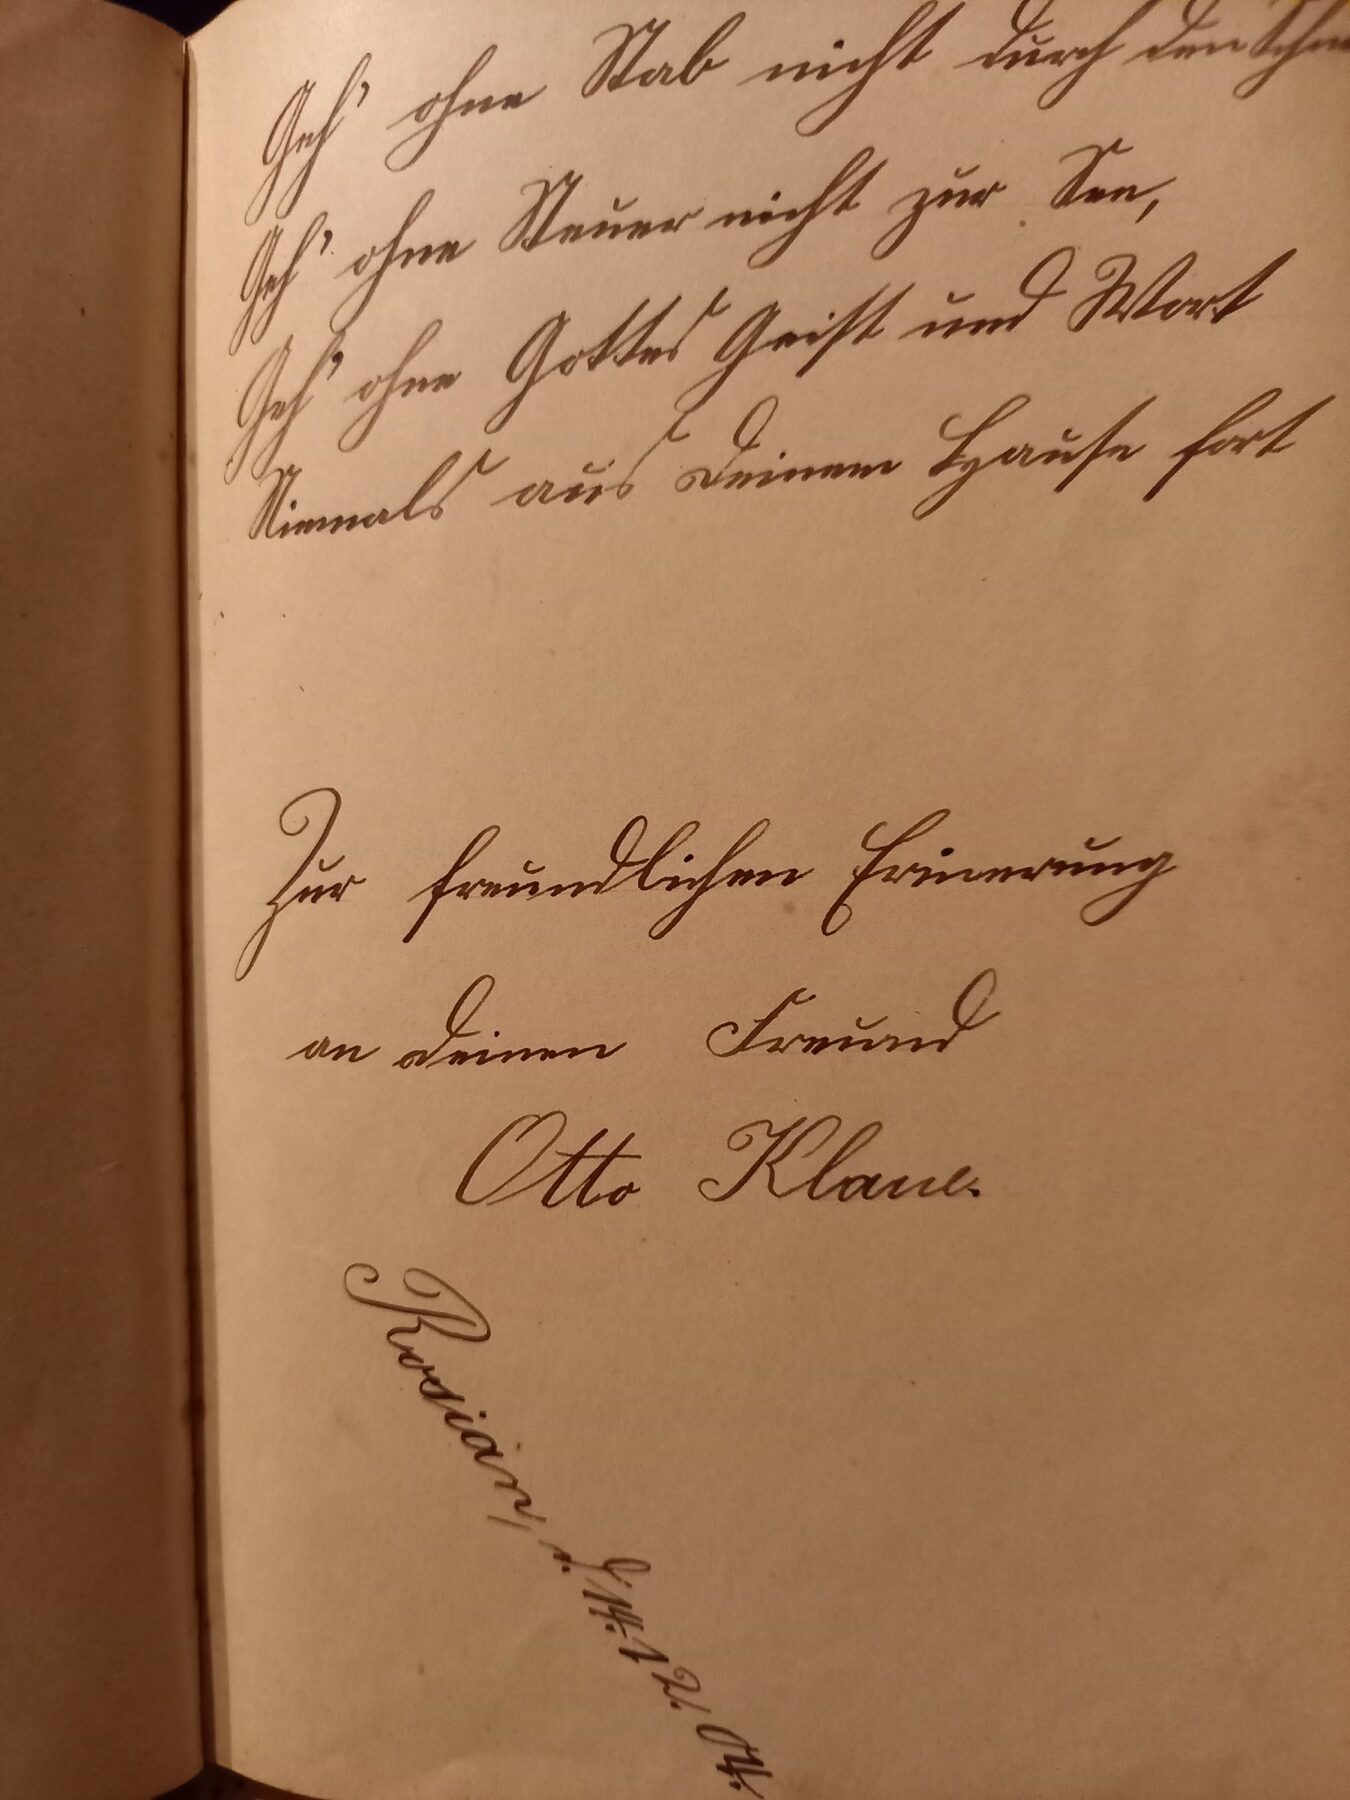 Geh' ohne Stab nicht durch den
Geh' ohne Steuer nicht zur See,
Geh' ohne Gottes Geist und Wort
Niemals aus deinem Hause fort
Zur freundlichen Erinerung
an deinen Freund
Otto Klaue.
d. 14.12.04.